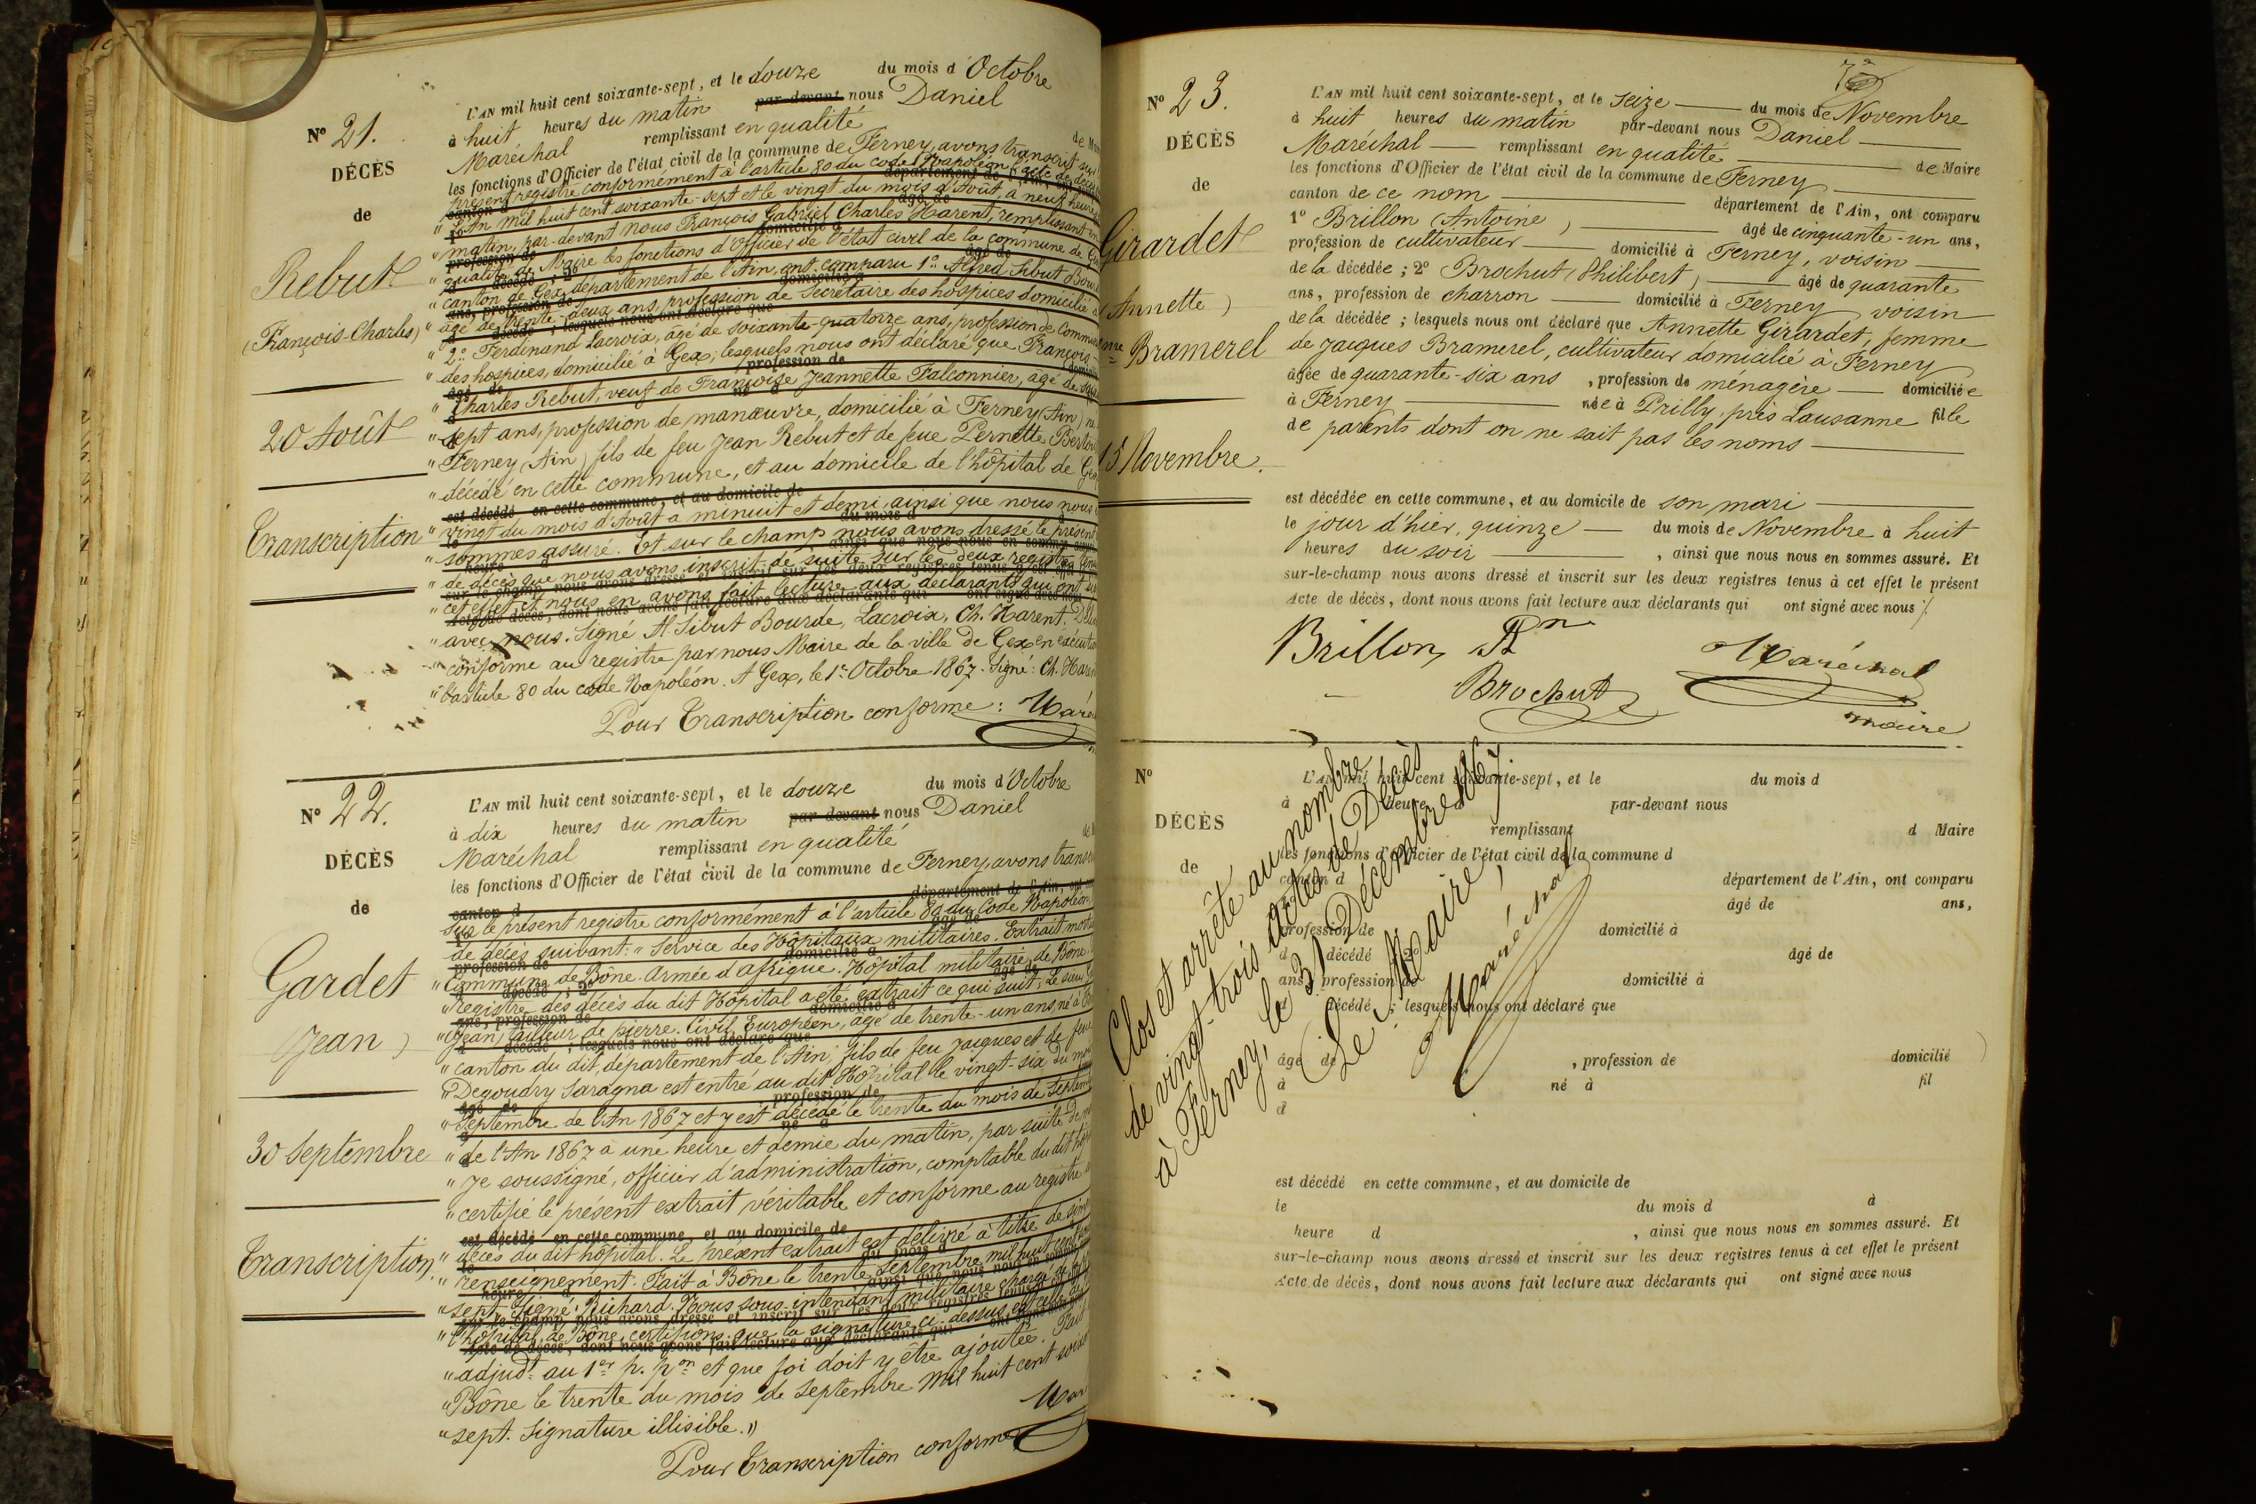 N° 21.
DÉCÈS
de
Rebut
(François-Charles)
20 Août
Transcription
L'AN mil huit cent soixante-sept, et le douze du mois d'Octobre
à huit heures du matin par-devant nous Daniel
Maréchal remplissant en qualité de
les fonctions d'Officier de l'état civil de la commune de Ferney, avons transcrit sur
présent registre conformément à l'article 80 du code Napoléon l'acte de décès
canton d département de l'Ain,
" L'An mil huit cent soixante-sept et le vingt du mois d'Août, à neuf heures
" matin, par-devant nous François Gabriel Charles Harent, remplissant en
" qualité de Maire les fonctions d'Officier de l'état civil de la commune de
" canton de Gex, département de l'Ain, ont comparu 1° Alfred Sibut Bourde
" âgé de trente-deux ans, profession de Secrétaire des hospices domicilié à
" 2° Ferdinand Lacroix, âgé de soixante-quatorze ans, profession de
" des hospices, domicilié à Gex; lesquels nous ont déclaré que François-
" Charles Rebut, veuf de Françoise Jeannette Falconnier, âgé de
" sept ans, profession de manœuvre, domicilié à Ferney (Ain)
" Ferney (Ain) fils de feu Jean Rebut et de feue Pernette
" décédé en cette commune, et au domicile de l'hôpital de Gex
est décédé en cette commune, et au domicile de
" vingt du mois d'Août à minuit et demi, ainsi que nous nous
" sommes assuré. Et sur le champ nous avons dressé le présent
" de décès que nous avons inscrit de suite sur les deux registres
" cet effet et nous en avons fait lecture aux déclarants qui ont
" avec nous. Signé Al Sibut Bourde, Lacroix, Ch. Harent.
" conforme au registre par nous Maire de la ville de Gex en exécution
" l'article 80 du code Napoléon. A Gex, le 1er Octobre 1867. Signé: Ch.
Pour Transcription conforme:
N° 22.
DÉCÈS
de
Gardet
(Jean)
30 Septembre
Transcription.
L'AN mil huit cent soixante-sept, et le douze du mois d'Octobre
à dix heures du matin par devant nous Daniel
Maréchal remplissant en qualité
les fonctions d'Officier de l'état civil de la commune de Ferney, avons
canton d département de l'Ain,
sur le présent registre conformément à l'article 80 du Code Napoléon
de décès suivant: " Service des Hôpitaux militaires. Extrait
" Commune de Bône. Armée d'Afrique. Hôpital militaire de Bône
" registre des décès du dit Hôpital a été extrait ce qui suit: Le sieur
" (Jean) tailleur de pierre. Civil Européen, âgé de trente-un ans, né à
" canton du dit, département de l'Ain, fils de feu Jacques et de feue
" Degoudry Saragna est entré au dit Hôpital le vingt-six du mois
" Septembre de l'An 1867 et y est décédé le trente du mois de
" de l'An 1867 à une heure et demie du matin, par suite de
" Je soussigné, officier d'administration, comptable du dit
" certifie le présent extrait véritable et conforme au registre
est décédé en cette commune, et au domicile de
" décès du dit hôpital. Le présent extrait est délivré à titre de
" renseignement. Fait à Bône le trente Septembre mil huit cent
" sept. Signé: Richard. Nous sous-intendant militaire chargé de
" l'hôpital de Bône, certifions que la signature ci-dessus est celle de
" adjudt au 1er p. pon et que foi doit y être ajoutée. Fait
" Bône le trente du mois de Septembre mil huit cent
" sept. Signature illisible."
Pour Transcription conforme
N° 23.
DÉCÈS
de
Girardet
(Annette)
Bramerel
15 Novembre.
L'AN mil huit cent soixante-sept, et le seize du mois de Novembre
à huit heures du matin par-devant nous Daniel
Maréchal remplissant en qualité de Maire
les fonctions d'Officier de l'état civil de la commune de Ferney
canton de ce nom département de l'Ain, ont comparu
1° Brillon (Antoine) âgé de cinquante-un ans,
profession de cultivateur domicilié à Ferney, voisin
de la décédée; 2° Brochut (Philibert) âgé de quarante
ans, profession de charron domicilié à Ferney voisin
de la décédée; lesquels nous ont déclaré que Annette Girardet, femme
de Jacques Bramerel, cultivateur domicilié à Ferney
âgée de quarante-six ans, profession de ménagère domiciliée
à Ferney née à Prilly, près Lausanne fille
de parents dont on ne sait pas les noms
est décédée en cette commune, et au domicile de son mari
le jour d'hier, quinze du mois de Novembre à huit
heures du soir, ainsi que nous nous en sommes assuré. Et
sur-le-champ nous avons dressé et inscrit sur les deux registres tenus à cet effet le présent
Acte de décès, dont nous avons fait lecture aux déclarants qui ont signé avec nous
Brillon
Brochut
Maréchal
maire
N°
DÉCÈS
de
L'AN mil huit cent soixante-sept, et le du mois d
à heure d par-devant nous
remplissant d Maire
les fonctions d'Officier de l'état civil de la commune d
canton d département de l'Ain, ont comparu
âgé de ans,
profession de domicilié à
d décédé; 2° âgé de
ans, profession de domicilié à
d décédé; lesquels nous ont déclaré que
âgé de, profession de domicilié
à né à fil
d
est décédé en cette commune, et au domicile de
le du mois d à
heure d, ainsi que nous nous en sommes assuré. Et
sur-le-champ nous avons dressé et inscrit sur les deux registres tenus à cet effet le présent
Acte de décès, dont nous avons fait lecture aux déclarants qui ont signé avec nous
Clos et arrêté au nombre
de vingt-trois actes de Décès
à Ferney, le 31 Décembre 1867
Le Maire,
Maréchal